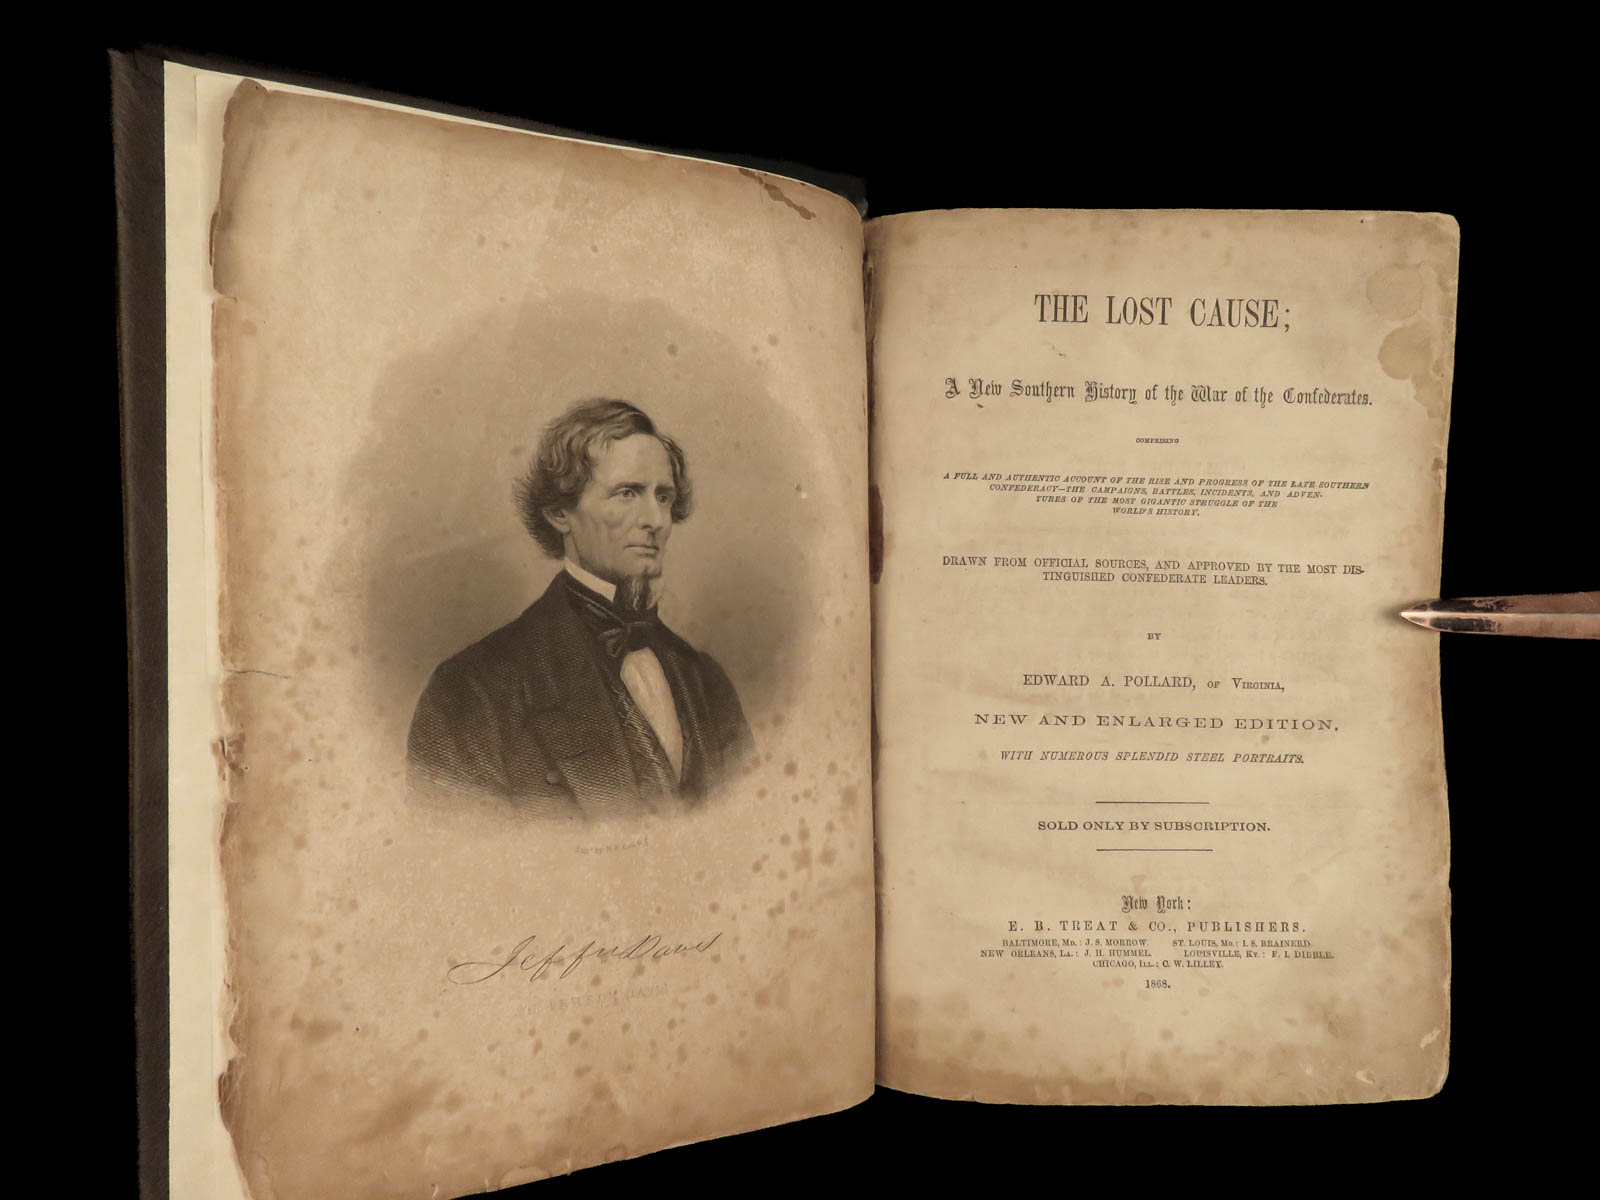 Jeffn Davis
JEFFERSON DAVIS
THE LOST CAUSE;
A New Southern History of the War of the Confederates.
COMPRISING
A FULL AND AUTHENTIC ACCOUNT OF THE RISE AND PROGRESS OF THE LATE SOUTHERN
CONFEDERACY—THE CAMPAIGNS, BATTLES, INCIDENTS, AND ADVEN-
TURES OF THE MOST GIGANTIC STRUGGLE OF THE
WORLD'S HISTORY.
DRAWN FROM OFFICIAL SOURCES, AND APPROVED BY THE MOST DIS-
TINGUISHED CONFEDERATE LEADERS.
BY
EDWARD A. POLLARD, OF VIRGINIA,
NEW AND ENLARGED EDITION,
WITH NUMEROUS SPLENDID STEEL PORTRAITS.
SOLD ONLY BY SUBSCRIPTION.
New York:
E. B. TREAT & CO., PUBLISHERS.
BALTIMORE, MD.: J. S. MORROW. ST. LOUIS, MO.: I. S. BRAINERD.
NEW ORLEANS, LA.: J. H. HUMMEL. LOUISVILLE, KY.: F. I. DIBBLE.
CHICAGO, ILL.: C. W. LILLEY.
1868.